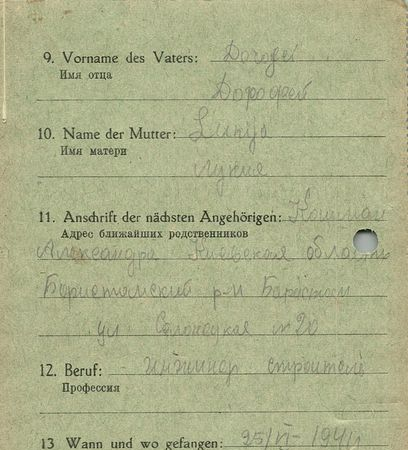 9. Vorname des Vaters: Дорофей
Имя отца
Дорофей
10. Name der Mutter:
Имя матери
Лукия
11. Anschrift der nächsten Angehörigen: Кошман
Адрес ближайших родственников
Александра Киевская область
р-н
ул № 20
12. Beruf: инжинер строитель
Профессия
13 Wann und wo gefangen: 25/VI-1941